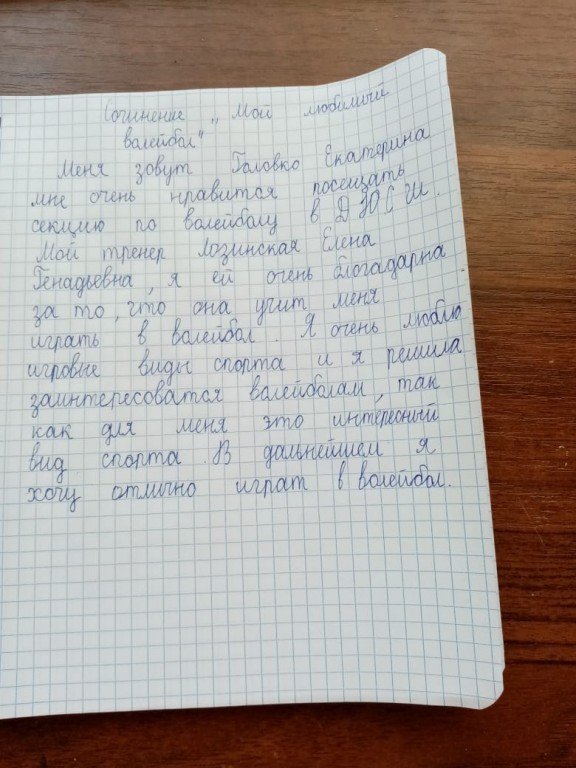 Сочинение „Мой любимый
волейбол"
Меня зовут Головко Екатерина
мне очень нравится посещать
секцию по волейболу в ДЮСШ.
Мой тренер Лозинская Елена
Генадьевна, я ей очень блогадарна
за то, что она учит меня
играть в волейбол. Я очень люблю
игровые виды спорта и я решила
заинтересоватся волейболам, так
как для меня это интересный
вид спорта. В дальнейшем я
хочу отлично играт в волейбол.